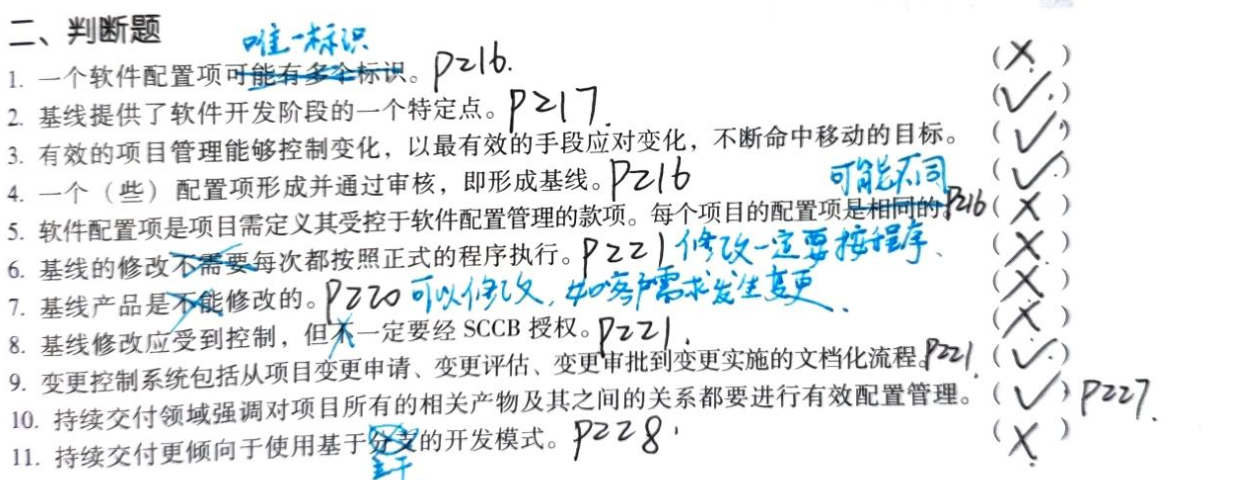 二、判断题
唯一标识
1. 一个软件配置项可能有多个标识。P216. (×)
2. 基线提供了软件开发阶段的一个特定点。P217. (✓)
3. 有效的项目管理能够控制变化，以最有效的手段应对变化，不断命中移动的目标。 (✓)
4. 一个（些）配置项形成并通过审核，即形成基线。P216 (✓)
可能不同
5. 软件配置项是项目需定义其受控于软件配置管理的款项。每个项目的配置项是相同的。P216 (×)
6. 基线的修改不需要每次都按照正式的程序执行。P221 修改一定要按程序、 (×)
7. 基线产品是不能修改的。P220 可以修改，如客户需求发生变更. (×)
8. 基线修改应受到控制，但不一定要经 SCCB 授权。P221. (×)
9. 变更控制系统包括从项目变更申请、变更评估、变更审批到变更实施的文档化流程。P221 (✓)
10. 持续交付领域强调对项目所有的相关产物及其之间的关系都要进行有效配置管理。 (✓) P227.
11. 持续交付更倾向于使用基于分支的开发模式。P228. (×)
主干